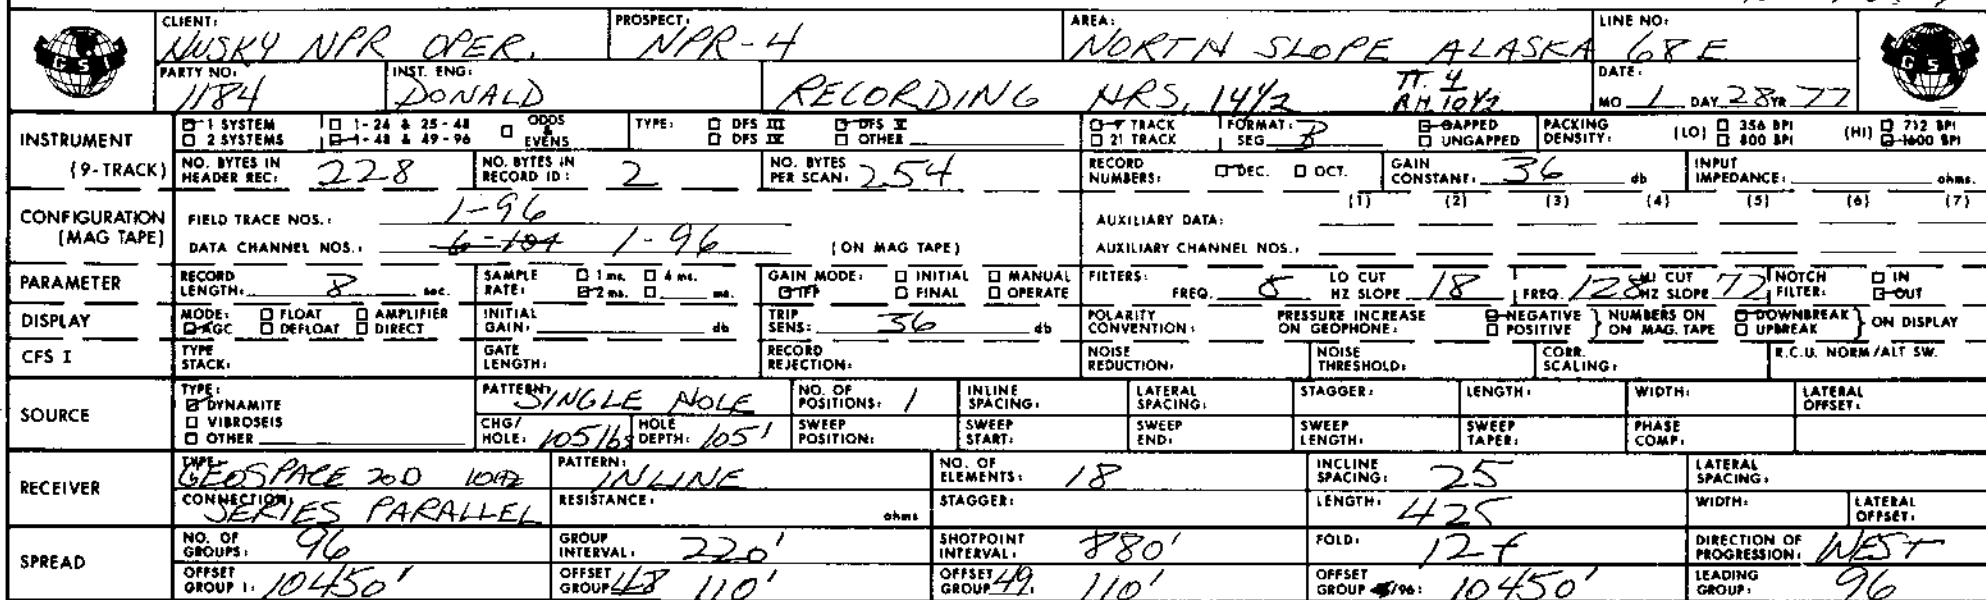 CLIENT: HUSKY NPR OPER. PROSPECT: NPR-4 AREA: NORTH SLOPE ALASKA LINE NO: 68E
GSI GSI
PARTY NO: 1184 INST. ENG: DONALD RECORDING HRS, 14 1/2 TT. 4 RH 10 1/2 DATE: MO 1 DAY 28 YR 77
INSTRUMENT (9-TRACK)
1 SYSTEM 1-24 & 25-48 ODDS & EVENS TYPE: DFS III DFS V 9 TRACK FORMAT: SEG B GAPPED PACKING DENSITY: (LO) 356 BPI (HI) 712 BPI
2 SYSTEMS 1-48 & 49-96 DFS IV OTHER 21 TRACK UNGAPPED 800 BPI 1600 BPI
NO. BYTES IN HEADER REC: 228 NO. BYTES IN RECORD ID: 2 NO. BYTES PER SCAN: 254 RECORD NUMBERS: DEC. OCT. GAIN CONSTANT: 36 db INPUT IMPEDANCE: ohms.
CONFIGURATION (MAG TAPE)
FIELD TRACE NOS.: 1-96 AUXILIARY DATA: (1) (2) (3) (4) (5) (6) (7)
DATA CHANNEL NOS.: 6-104 1-96 (ON MAG TAPE) AUXILIARY CHANNEL NOS.:
PARAMETER
RECORD LENGTH: 8 sec. SAMPLE RATE: 1 ms. 4 ms. 2 ms. ms. GAIN MODE: INITIAL MANUAL IFP FINAL OPERATE FILTERS: FREQ. 8 LO CUT HZ SLOPE 18 FREQ. 128 HI CUT HZ SLOPE 72 NOTCH FILTER: IN OUT
DISPLAY
MODE: FLOAT AMPLIFIER AGC DEFLOAT DIRECT INITIAL GAIN: db TRIP SENS: 36 db POLARITY CONVENTION: PRESSURE INCREASE ON GEOPHONE: NEGATIVE POSITIVE NUMBERS ON ON MAG. TAPE DOWNBREAK UPBREAK ON DISPLAY
CFS I TYPE STACK: GATE LENGTH: RECORD REJECTION: NOISE REDUCTION: NOISE THRESHOLD: CORR. SCALING: R.C.U. NORM/ALT SW.
SOURCE
TYPE: DYNAMITE VIBROSEIS OTHER
PATTERN: SINGLE HOLE NO. OF POSITIONS: 1 INLINE SPACING: LATERAL SPACING: STAGGER: LENGTH: WIDTH: LATERAL OFFSET:
CHG/HOLE: 105 lbs HOLE DEPTH: 105' SWEEP POSITION: SWEEP START: SWEEP END: SWEEP LENGTH: SWEEP TAPER: PHASE COMP:
RECEIVER
TYPE: GEOSPACE 20D 10HZ PATTERN: INLINE NO. OF ELEMENTS: 18 INCLINE SPACING: 25 LATERAL SPACING:
CONNECTION: SERIES PARALLEL RESISTANCE: ohms STAGGER: LENGTH: 425 WIDTH: LATERAL OFFSET:
SPREAD
NO. OF GROUPS: 96 GROUP INTERVAL: 220' SHOTPOINT INTERVAL: 880' FOLD: 12 f DIRECTION OF PROGRESSION: WEST
OFFSET GROUP 1: 10450' OFFSET GROUP 48 110' OFFSET GROUP 49: 110' OFFSET GROUP /96: 10450' LEADING GROUP: 96